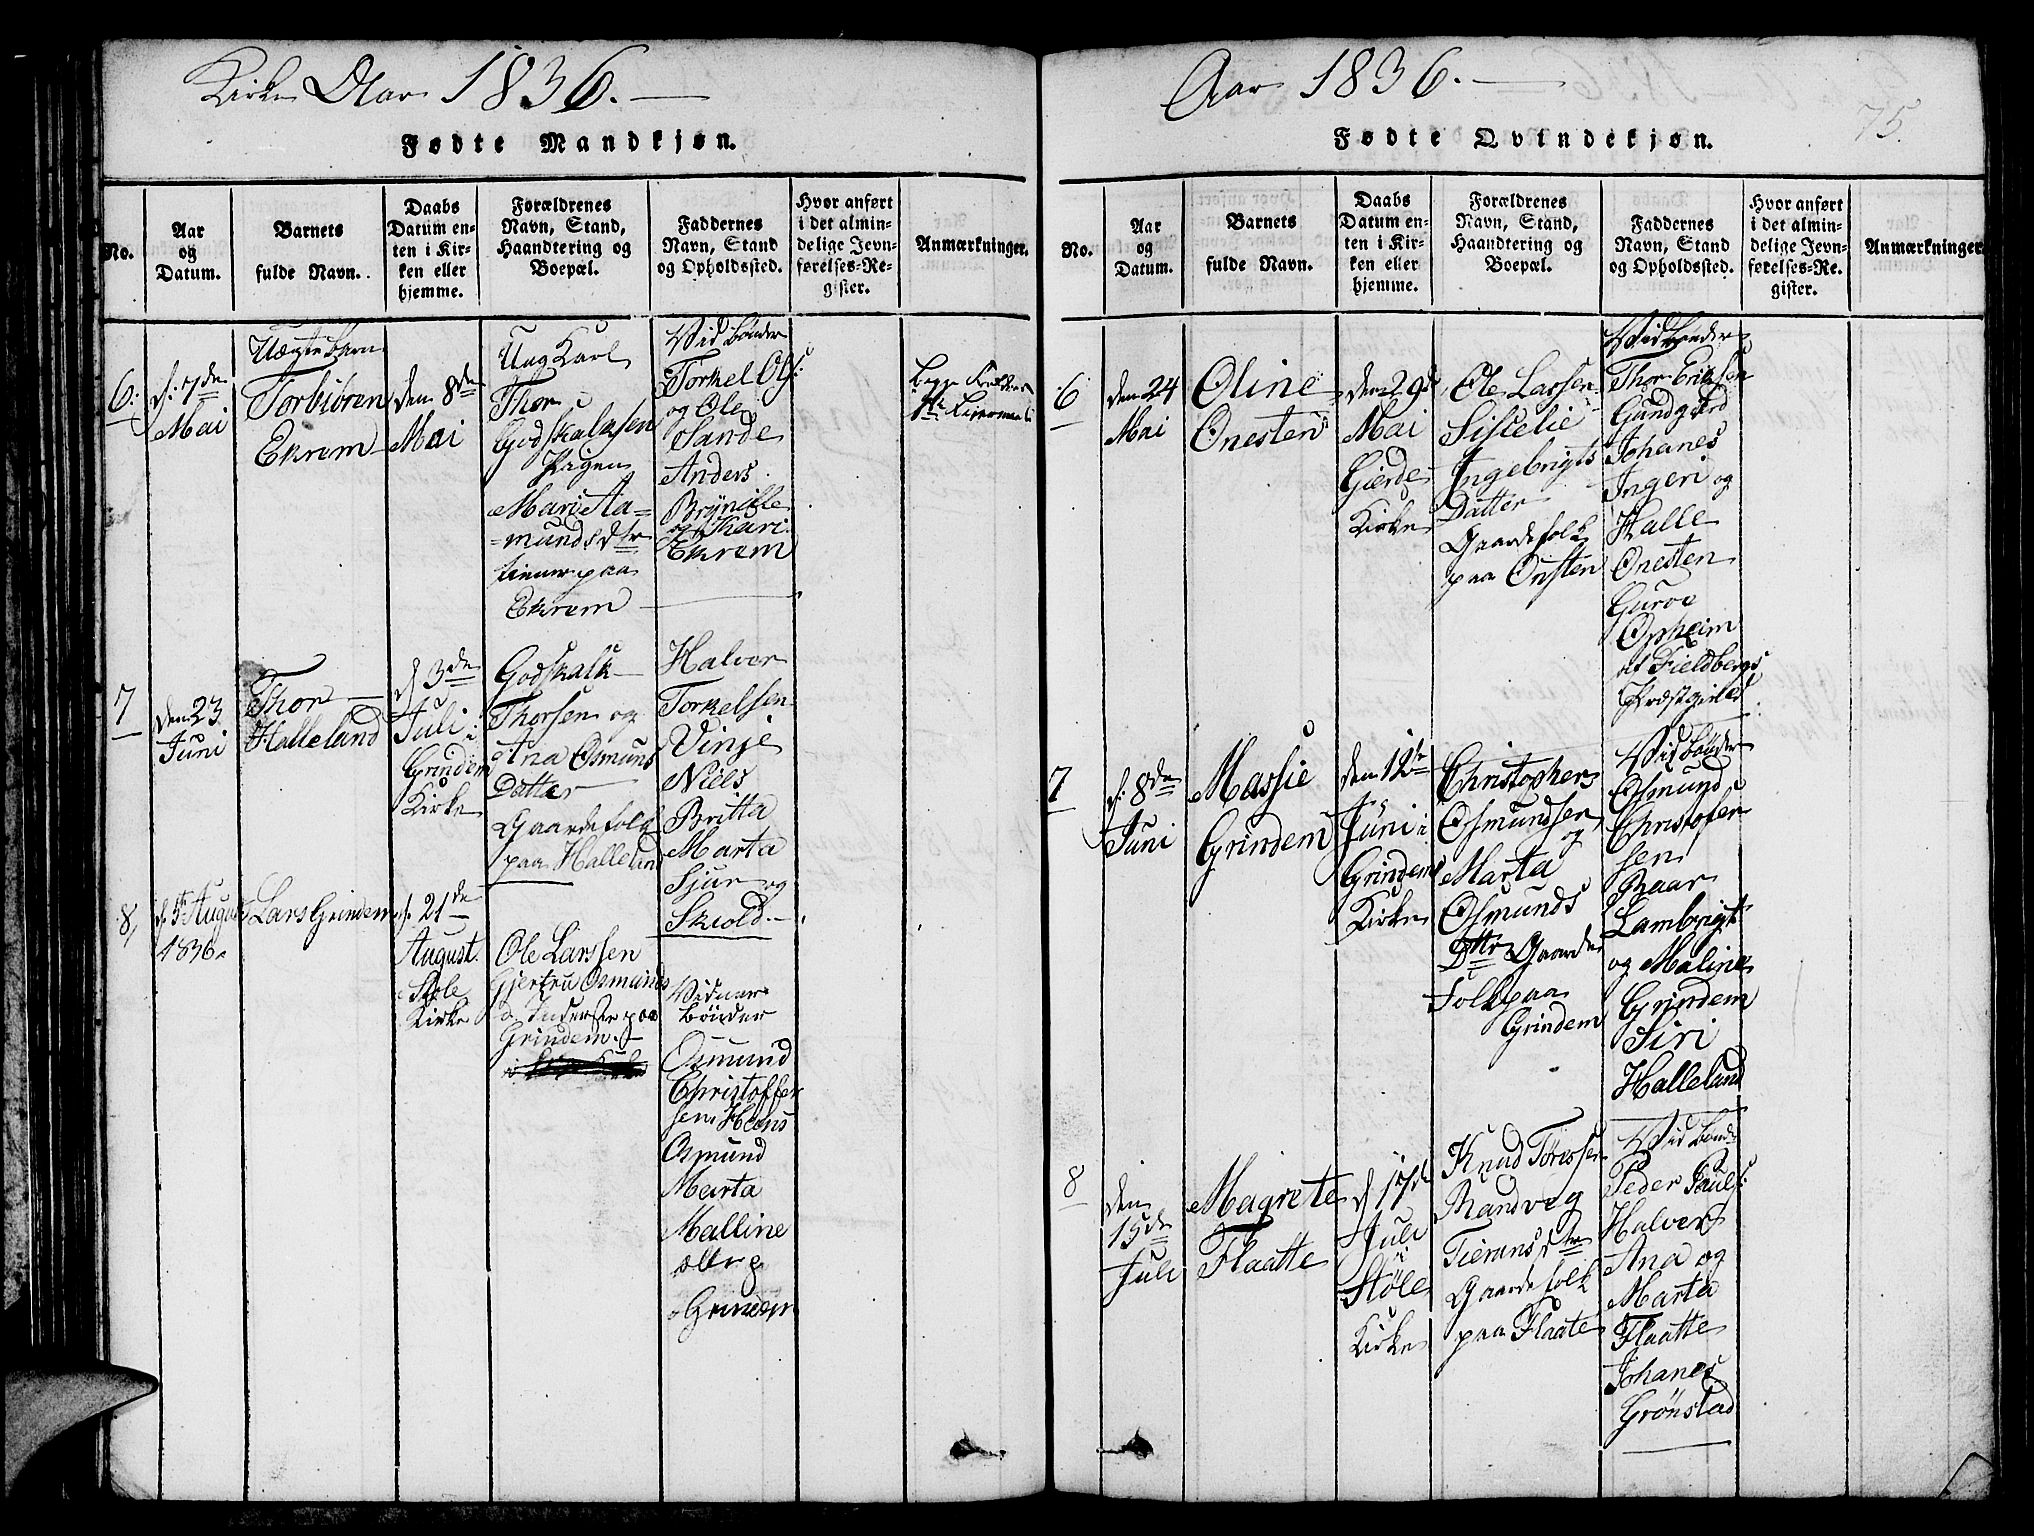 Kirke Aar 1836.
Fødte Mandkjøn.
No.
Aar
og
Datum.
Barnets
fulde Navn.
Daabs
Datum en-
ten i Kir-
ken eller
hjemme.
Forældrenes
Navn, Stand,
Haandtering og
Boepæl.
Faddernes
Navn, Stand
og Opholdssted.
Hvor anført
i det almin-
delige Jevn-
førelses-Re-
gister.
Anmærkninger.
6.
d: 7de
Mai
Uægte barn
Torbiören
Ekrem
den 8de
Mai
Ung Karl
Thor
Godskalksen
Hagen
Mari Aa-
mundsdtr
tiener paa
Ekrem
Vid bönder
Torkel Ols:
og Ole
Sande
Anders
Brynilde
og Kari
Ekrem
7
den 23
Juni
Thor
Halleland
d 3de
Juli i
Grindem
Kirke
Godskalk
Thorsen og
Ana Osmuns
Datter
Gaardefolk
paa Hallelan
Halvor
Torkelsen
Vinje
Niels
Britta
Marta
Sjur og
Skiold
8,
d. 5 August
1836.
Lars Grindem
d. 21de
August.
Stöle
Kirke
Ole Larssen
Gjertru Osmunds
Inderste paa
Grindem.
Vidner
bönder
Osmund
Christoffer
sen Hans
Osmund
Marta
Malline
alle p
Grindem
Aar 1836.
75.
Fødte Qvindekjøn.
No.
Aar
og
Datum.
Barnets
fulde Navn.
Daabs
Datum en-
ten i Kir-
ken eller
hjemme.
Forældrenes
Navn, Stand,
Haandtering og
Boepæl.
Faddernes
Navn, Stand
og Opholdssted.
Hvor anført
i det almin-
delige Jevn-
førelses-Re-
gister.
Anmærkninger
6
den 24
Mai
Oline
Onesten
den 29de
Mai
Gierde
Kirke
Ole Larsen
Siscelie
Ingebrigts
Datter
Gaardefolk
paa Onsten
Vid bönder
Thor Eriksen
Gundgierd
Johanes
Ingeri og
Halle
Onesten
Guroe
Opheim
af Fieldbergs
Præstgield
7
d: 8de
Juni
Massie
Grindem
den 12te
Juni i
Grindem
Kirke
Christopher
Osmundsen
og
Marta
Osmunds
Dttr Gaarde
Folk paa
Grindem
Vid bönder
Osmund
Christofer
sen
Baar
Lambrigt
og Maline
Grindem
Siri
Halleland
8
den
15de
Juli
Magrete
Flaatte
d 17de
Juli
i
Stöle
Kirke
Knud Törissen
Randveg
Tieransdtr
Gaardefolk
paa Flaate
Vid bönd
Peder Pauls:
Halver
Ana og
Marta
Flaatte
Johanes
Grönstad